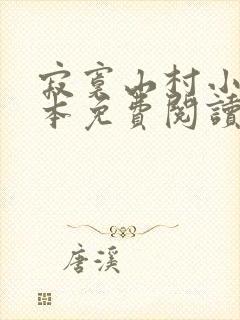 寂寞山村小
本免費閱讀
唐溪